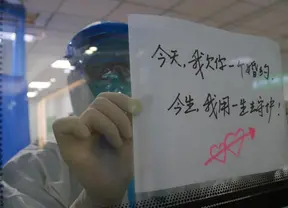 今天,我欠你一个婚约.
今生,我用一生去守护!